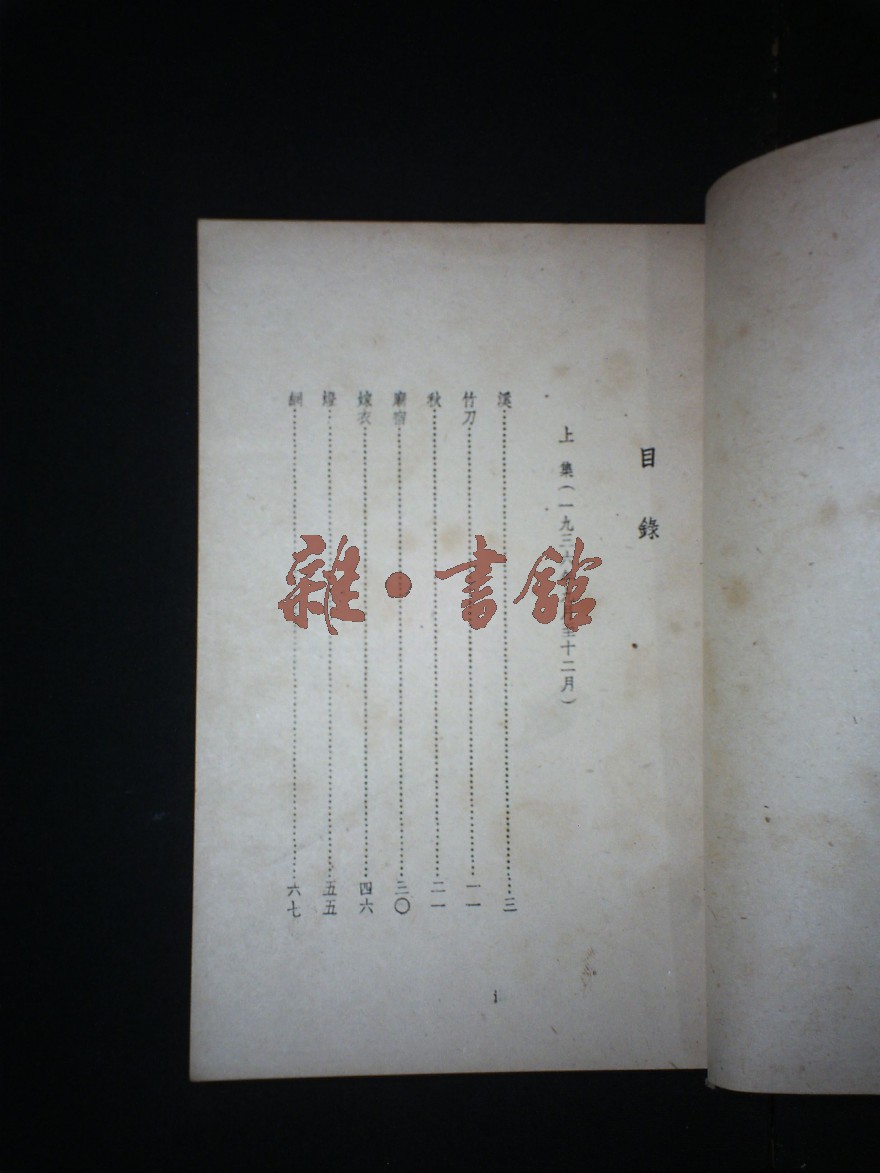 目錄
上集(一九三六年六月至十二月)
溪………三
竹刀………一一
秋………二一
廟宿………三〇
嫁衣………四六
燈………五五
網………六七
1
雜·書館